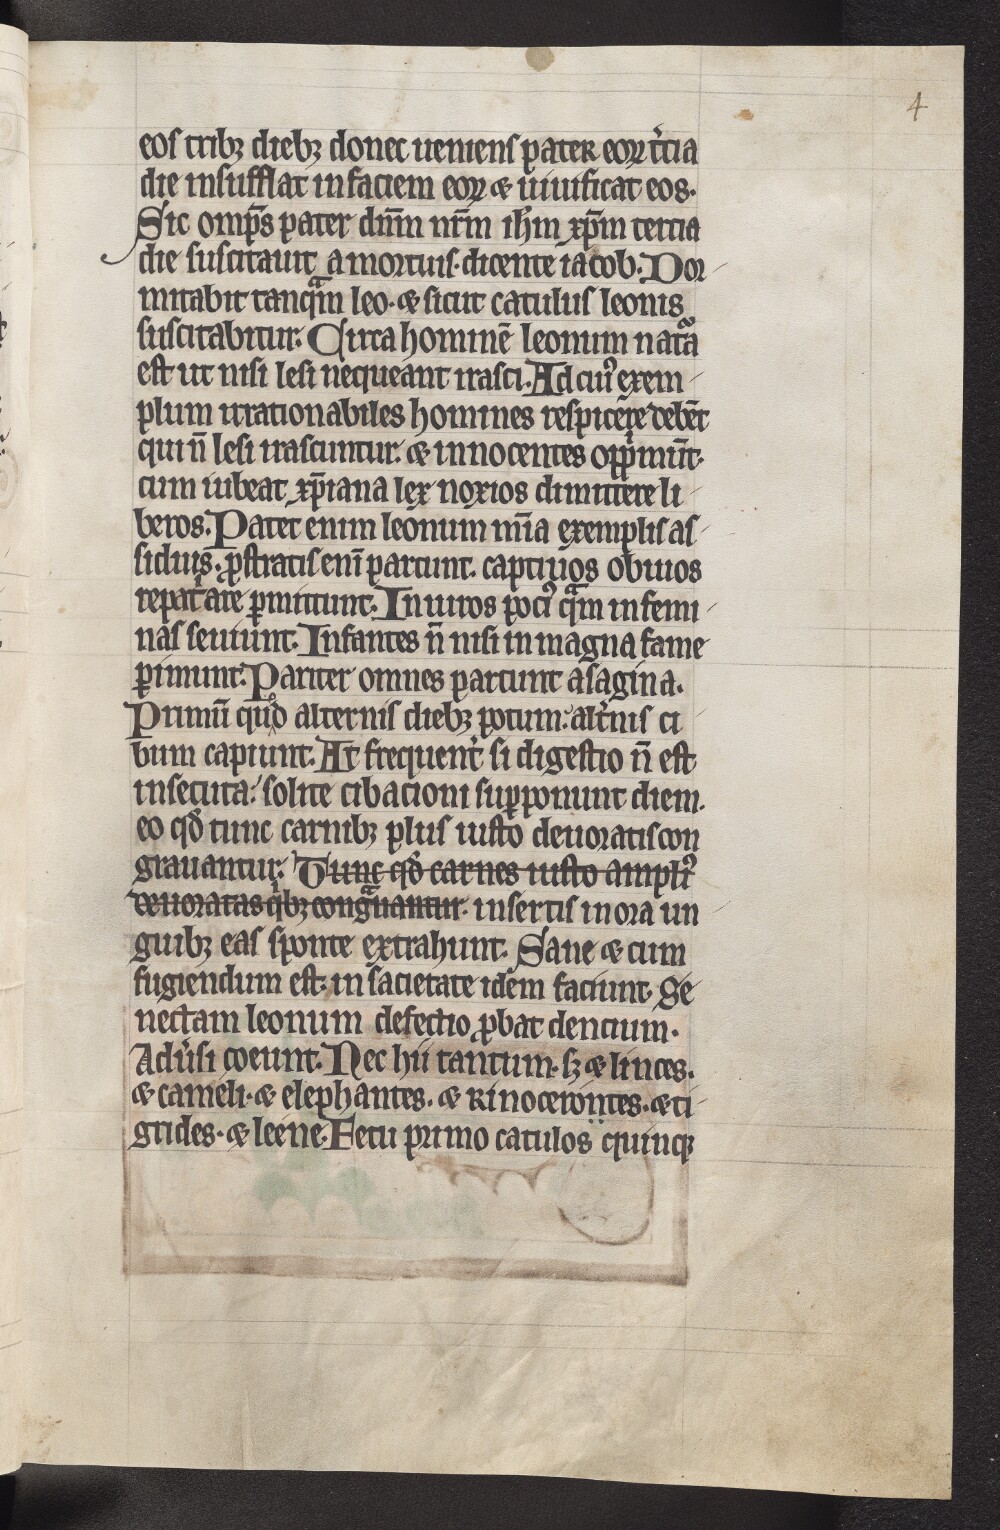 4
eos tribꝫ diebꝫ donec ueniens pater eoꝝ t̾cia
die insufflat in faciem eoꝝ & uiuificat eos.
Sic omp̄s pater dn̄m nr̄m ihm̄ xp̄m tercia
die suscitauit a mortuis. dicente iacob. Dor
mitabit tanqᷓm leo. & sicut catulus leonis
suscitabitur. Circa hominē leonum natᷓa
est ut nisi lesi nequeant irasci. Ad cui᷒ exem
plum irrationabiles homines respicere debēt
qui n̄ lesi irascuntur. & innocentes opp̍imūt.
cum iubeat xp̄iana lex noxios dimittere li
beros. Patet enim leonum mīa exemplis as
siduis. ꝓstratis enī parcunt. captiuos obuios
repat̍are ꝑmittunt. In uiros poci᷒ qᷓm in femi
nas seuiunt. Infantes n̄ nisi in magna fame
ꝑimunt. Pariter omnes parcunt a sagina.
Primū quod alternis diebꝫ potum. alt̾nis ci
bum capiunt. At frequent̾ si digestio n̄ est
insecuta. solite cibacioni supponunt diem.
eo qđ tunc carnibꝫ plus iusto deuoratis con
grauantur. Tunc qđ carnes iusto ampli᷒
deuoratas qͥbꝫ congᷓuantur. insertis in ora un
guibꝫ eas sponte extrahunt. Sane & cum
fugiendum est. in sacietate idem faciunt. Se
nectam leonum defectio ꝓbat dencium.
Adu̾si coeunt. Nec hii tantum. sꝫ & linces.
& cameli. & elephantes. & rinocerontes. & ti
grides. & leene. Fetu primo catulos quinqꝫ